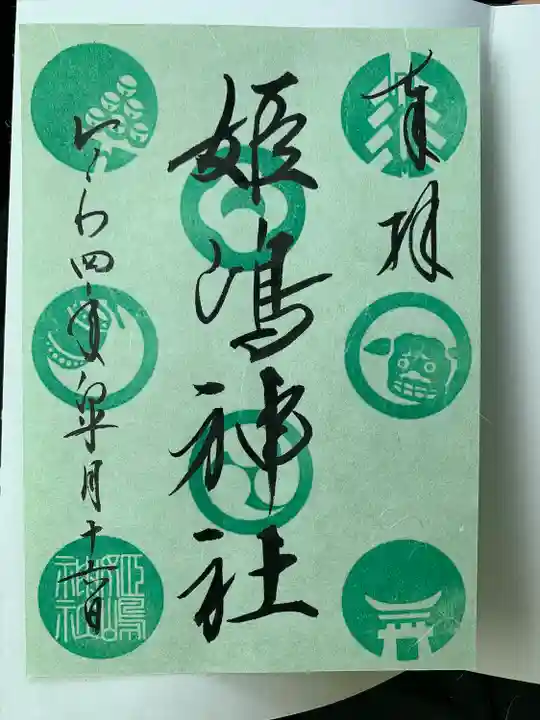 奉拝
姫嶋神社
令和四年皐月十六日
姫嶋神社